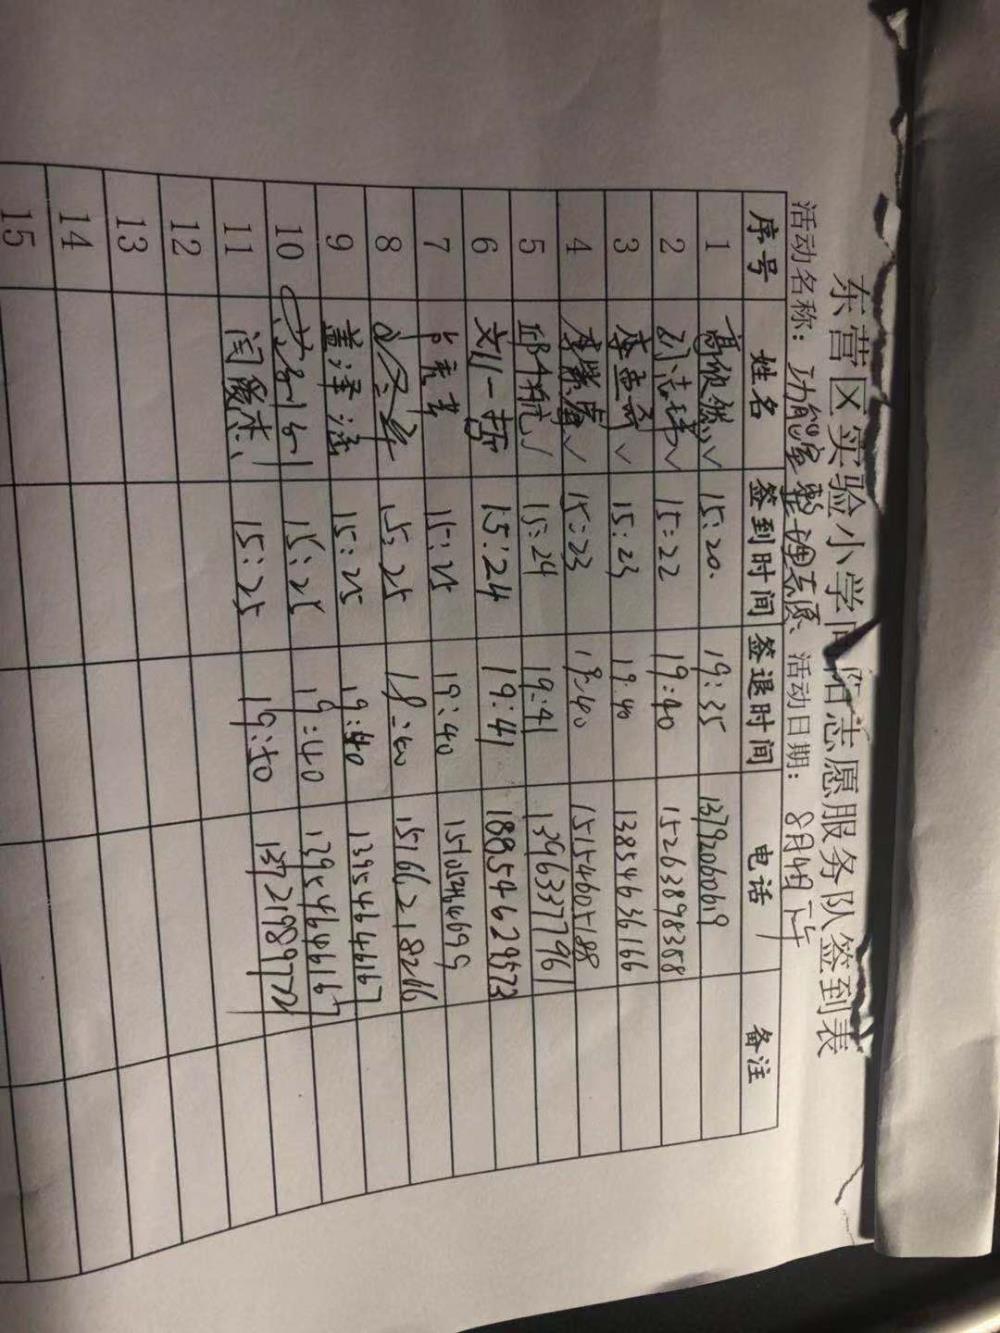 东营区实验小学向阳志愿服务队签到表
活动名称：功能室整理志愿、 活动日期：8月4日下午
序号 姓名 签到时间 签退时间 电话 备注
1 高欣然√ 15:20. 19:35 13792060619
2 √ 15:22 19:40 15263898358
3 √ 15:23 19:40 13854636166
4 √ 15:23 19:40 15154605188
5 √ 15:24 19:41 13963377961
6 刘一哲 15:24 19:41 18854629573
7 15:25 19:40
8 15:25 18:40 15166218266
9 盖泽涵 15:25 19:40 13954646167
10 15:25 19:40 13954646167
11 闫爱杰 15:25 19:50
12
13
14
15